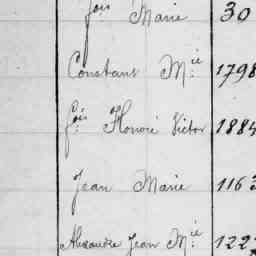 fois Marie 30
Constant Mie 1798
fois Honoré Victor 1884
Jean Marie 1163
Alexandre Jean Mie 122